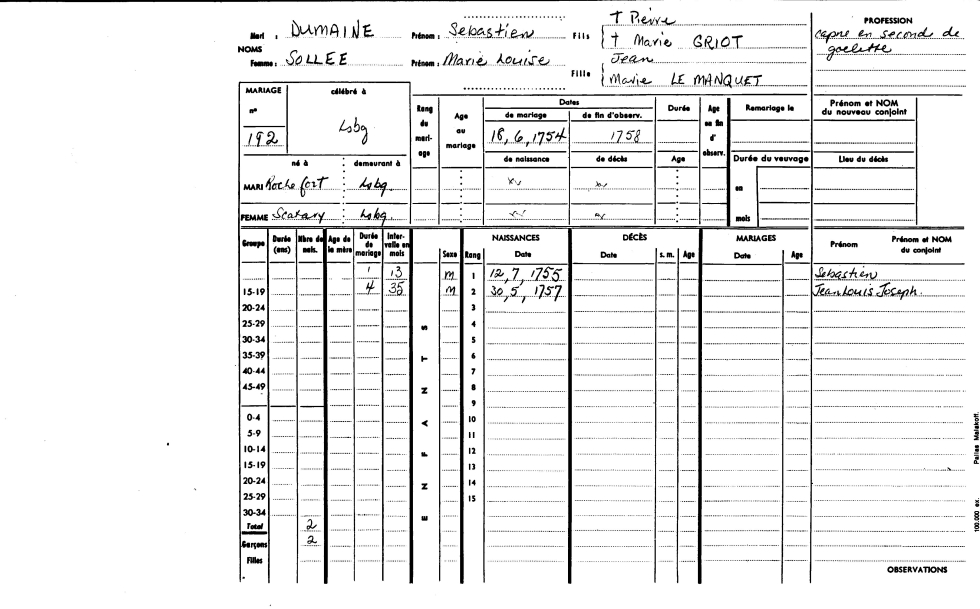 Mari : DUMAINE Prénom : Sebastien Fils { † Pierre
{ † Marie GRIOT
NOMS
Femme : SOLLEE Prénom : Marie Louise Fille { Jean
{ Marie LE MANQUET
PROFESSION
capne en second de
goelette
MARIAGE célébré à
n°
192 Lsbg
né à demeurant à
MARI Rochefort Lsbg.
FEMME Scatary Lsbg.
Rang du mariage Age au mariage Dates Durée Age en fin d'observ. Remariage le Prénom et NOM du nouveau conjoint
de mariage de fin d'observ.
18, 6, 1754 1758
de naissance de décès Age Durée du veuvage Lieu du décès
en
mois
Groupe Durée (ans) Nbre de nais. Age de la mère Durée de mariage Intervalle en mois Sexe Rang NAISSANCES Date DÉCÈS Date s. m. Age MARIAGES Date Age Prénom Prénom et NOM du conjoint
1 13 M 1 12, 7, 1755 Sebastien
15-19 4 35 M 2 30, 5, 1757 Jean Louis Joseph.
20-24 3
25-29 4
30-34 5
35-39 6
40-44 7
45-49 8
9
0-4 10
5-9 11
10-14 12
15-19 13
20-24 14
25-29 15
30-34
Total 2
Garçons 2
Filles
ENFANTS
OBSERVATIONS
100.000 ex. Pallas Malakoff.